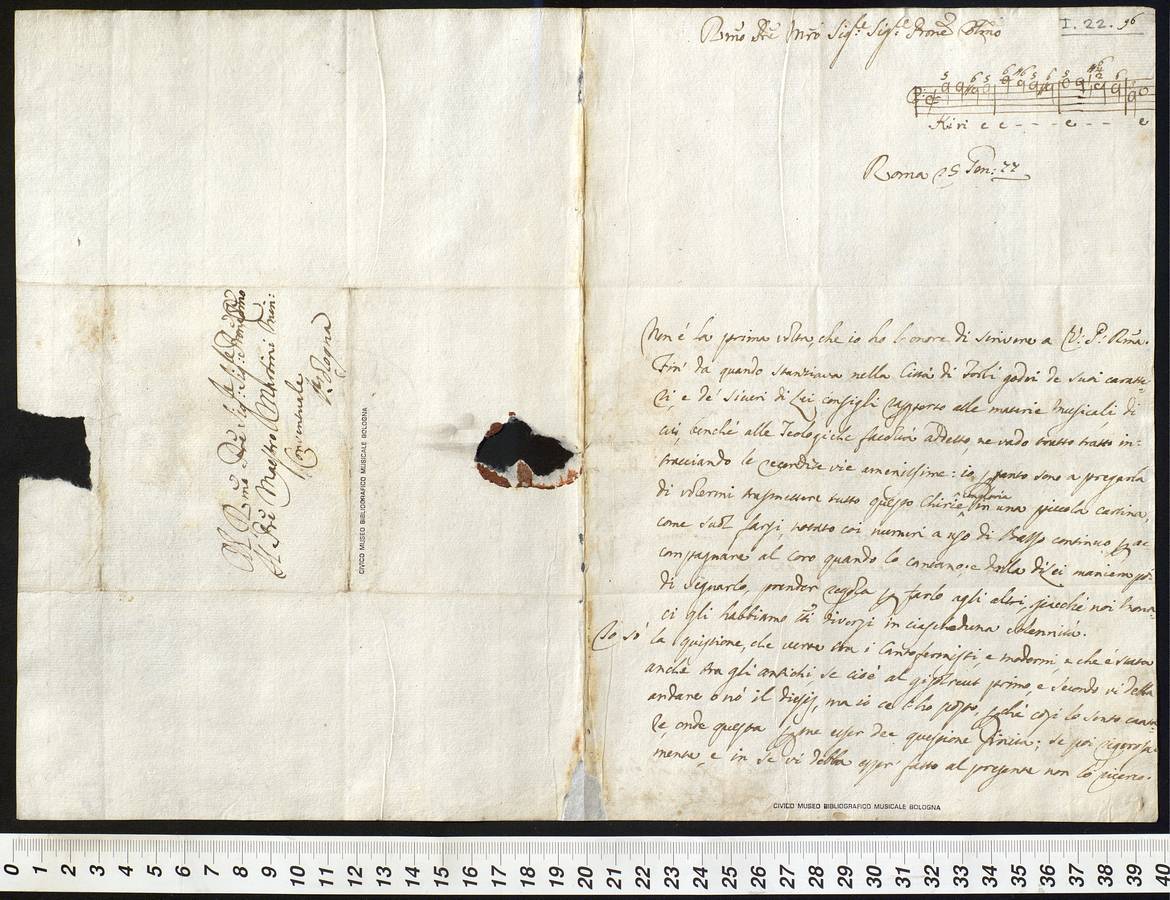 Al Rmo Pre Sig: Sig: Prone Colmo
Il Pre Maestro Martini Min:
Conventuale
Bologna
CIVICO MUSEO BIBLIOGRAFICO MUSICALE BOLOGNA
I. 22. 96
Rmo Pre Mro Sig.e Sig.e Prone Colmo
Kiri e e - - - e - - e
Roma 25 Gen: 77
Non è la prima volta, che io ho l'onore di scrivere a V: P: Rma.
Fin' da quando stanziava nella Città di Forlì godei de suoi caratte-
ri, e de' sinceri di Lei consigli rapporto alle materie Musicali, di
cui, benché alle Teologiche facoltà addetto, ne vado tratto tratto in-
tracciando le recondite vie amenissime: io pertanto sono a pregarla
di volermi trasmettere tutto questo Chirie con gloria in una piccola cartina,
come suol farsi, notato coi numeri a uso di Basso continuo p ac-
compagnare al Coro quando lo cantano, e dalla di Lei maniera poi
di segnarlo, prender regola p farlo agli altri, giacché noi Mona-
ci gli habbiamo tti diversi in ciascheduna solennità.
Io sò la quistione, che verte tra i Cantofermisti, e moderni, e che è stata
anche tra gli antichi, se cioè al gisolreut primo, e secondo vi debba
andare o nò il diesis, ma io ce l'ho posto, pché così lo sento canta-
re, onde questa pme esser dee questione finita; se poi rigorosa-
mente, e in se vi debba esser' fatto al presente non lo ricerco.
CIVICO MUSEO BIBLIOGRAFICO MUSICALE BOLOGNA
0 1 2 3 4 5 6 7 8 9 10 11 12 13 14 15 16 17 18 19 20 21 22 23 24 25 26 27 28 29 30 31 32 33 34 35 36 37 38 39 40